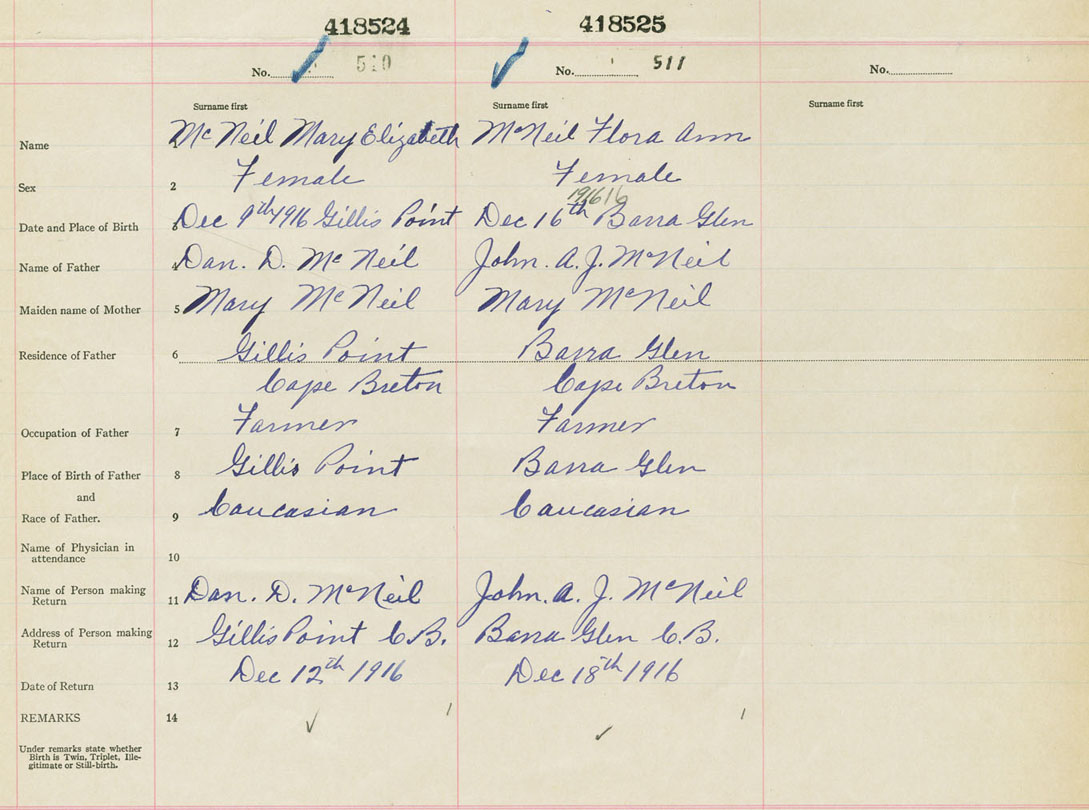 418524 418525
No. 510 No. 511 No.
Surname first Surname first Surname first
Name 1 McNeil Mary Elizabeth McNeil Flora Ann
Sex 2 Female Female
1916 16
Date and Place of Birth 3 Dec 9th 1916 Gillis Point Dec 16th Barra Glen
Name of Father 4 Dan. D. McNeil John. A. J. McNeil
Maiden name of Mother 5 Mary McNeil Mary McNeil
Residence of Father 6 Gillis Point Barra Glen
Cape Breton Cape Breton
Occupation of Father 7 Farmer Farmer
Place of Birth of Father 8 Gillis Point Barra Glen
and
Race of Father. 9 Caucasian Caucasian
Name of Physician in
attendance 10
Name of Person making
Return 11 Dan. D. McNeil John. A. J. McNeil
Address of Person making
Return 12 Gillis Point C.B. Barra Glen C.B.
Date of Return 13 Dec 12th 1916 Dec 18th 1916
REMARKS 14
Under remarks state whether
Birth is Twin, Triplet, Ille-
gitimate or Still-birth.